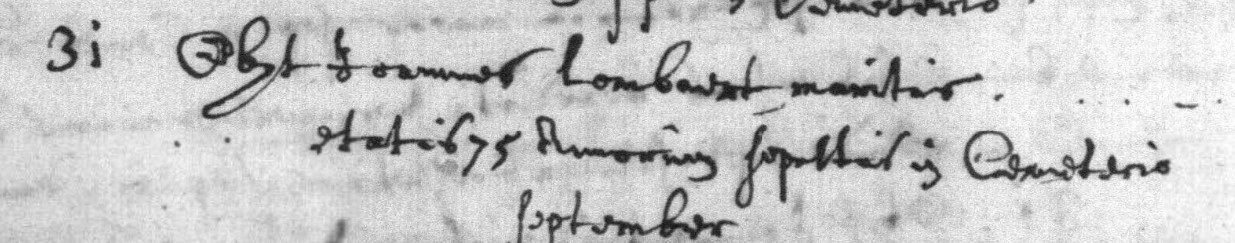 Cemeterio
31 Obyt Joannes Lombaert maritus .
etatis 75 Annorum sepultus in Cemeterio
september